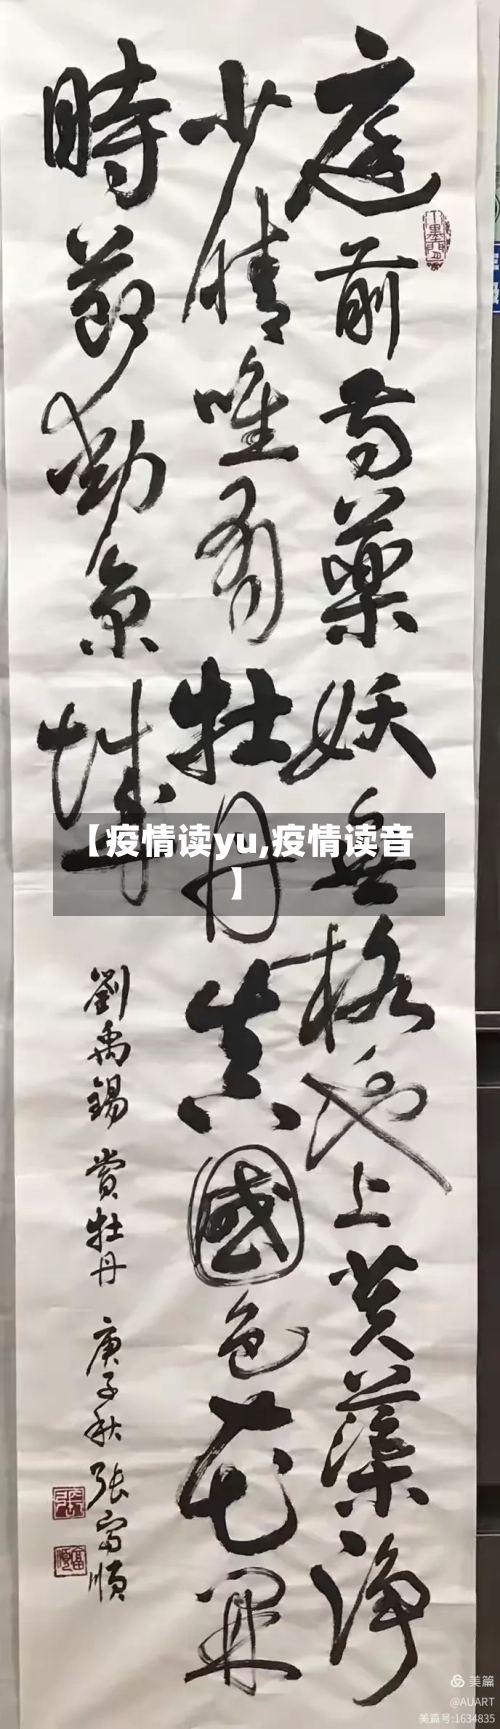 庭前芍藥妖無格池上芙蕖淨
少情唯有牡丹真國色花開
時節動京城
劉禹錫 賞牡丹 庚子秋 張富順
【疫情读yu,疫情读音
】
美篇
@AUART
美篇号:1634835